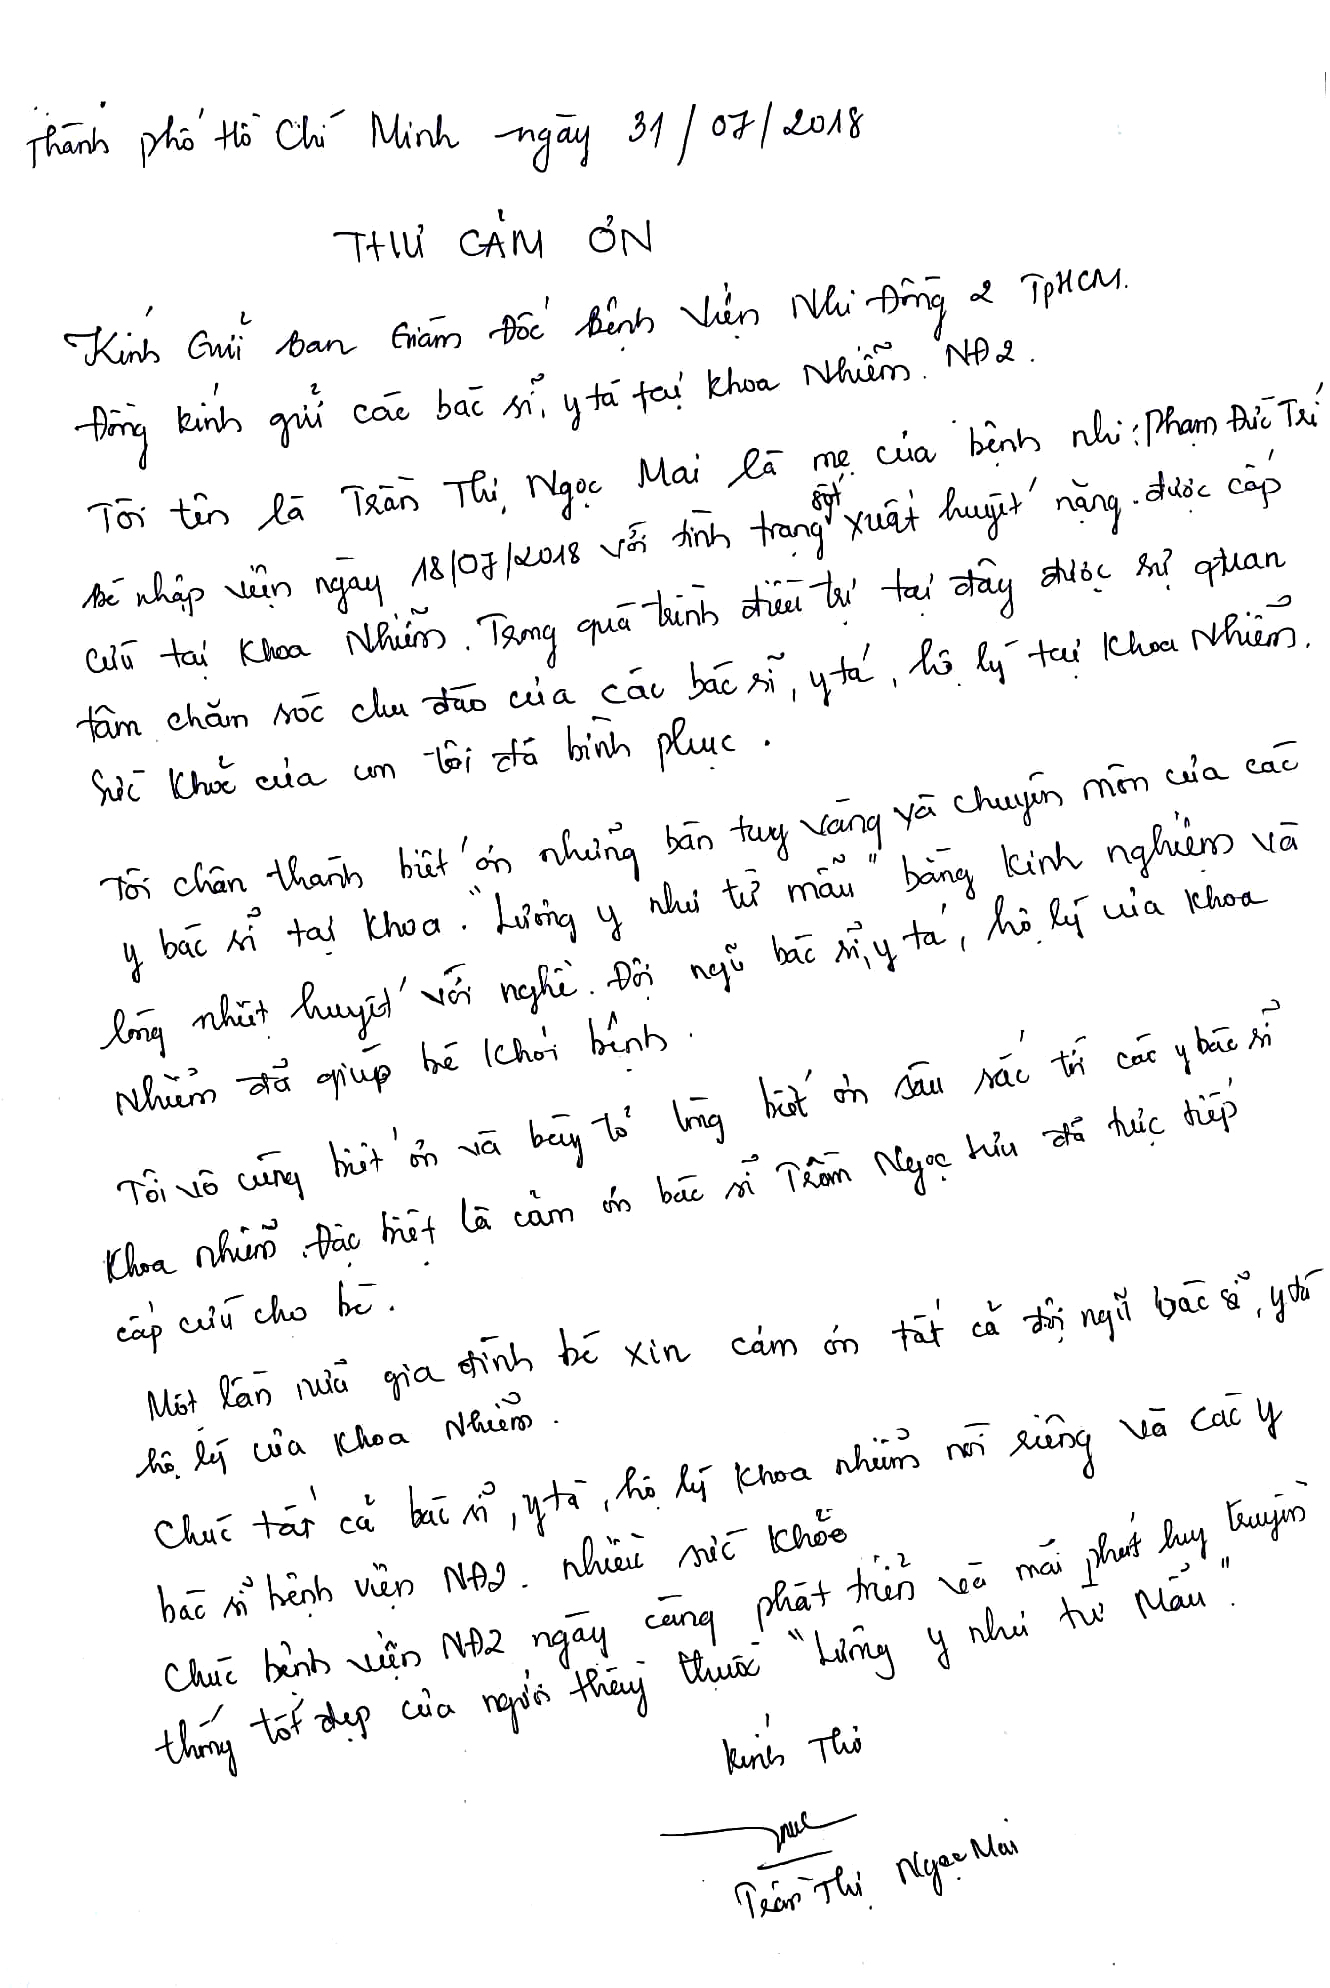 Thành phố Hồ Chí Minh ngày 31/07/2018
THƯ CẢM ƠN
Kính Gửi ban Giám Đốc Bệnh Viện Nhi Đồng 2 TpHCM.
Đồng kính gửi các bác sĩ, y tá tại khoa Nhiễm. NĐ2.
Tôi tên là Trần Thị Ngọc Mai là mẹ của bệnh nhi: Phạm Đức Trí
Bé nhập viện ngày 18/07/2018 với tình trạng sốt xuất huyết nặng. được cấp
cứu tại Khoa Nhiễm. Trong quá trình điều trị tại đây được sự quan
tâm chăm sóc chu đáo của các bác sĩ, y tá, hộ lý tại Khoa Nhiễm.
Sức khoẻ của con tôi đã bình phục.
Tôi chân thành biết ơn những bàn tay vàng và chuyên môn của các
y bác sĩ tại khoa. "Lương y như từ mẫu" bằng kinh nghiệm và
lòng nhiệt huyết với nghề. Đội ngũ bác sĩ, y tá, hộ lý của khoa
Nhiễm đã giúp bé khỏi bệnh.
Tôi vô cùng biết ơn và bày tỏ lòng biết ơn sâu sắc tới các y bác sĩ
Khoa nhiễm. Đặc biệt là cảm ơn bác sĩ Trần Ngọc Lưu đã trực tiếp
cấp cứu cho bé.
Một lần nữa gia đình bé xin cám ơn tất cả đội ngũ bác sĩ, y tá
hộ lý của khoa Nhiễm.
Chúc tất cả bác sĩ, y tá, hộ lý khoa nhiễm nói riêng và các y
bác sĩ bệnh viện NĐ2. nhiều sức khoẻ
Chúc bệnh viện NĐ2 ngày càng phát triển và mãi phát huy truyền
thống tốt đẹp của người thầy thuốc "Lương y như từ Mẫu".
Kính Thư
Trần Thị Ngọc Mai